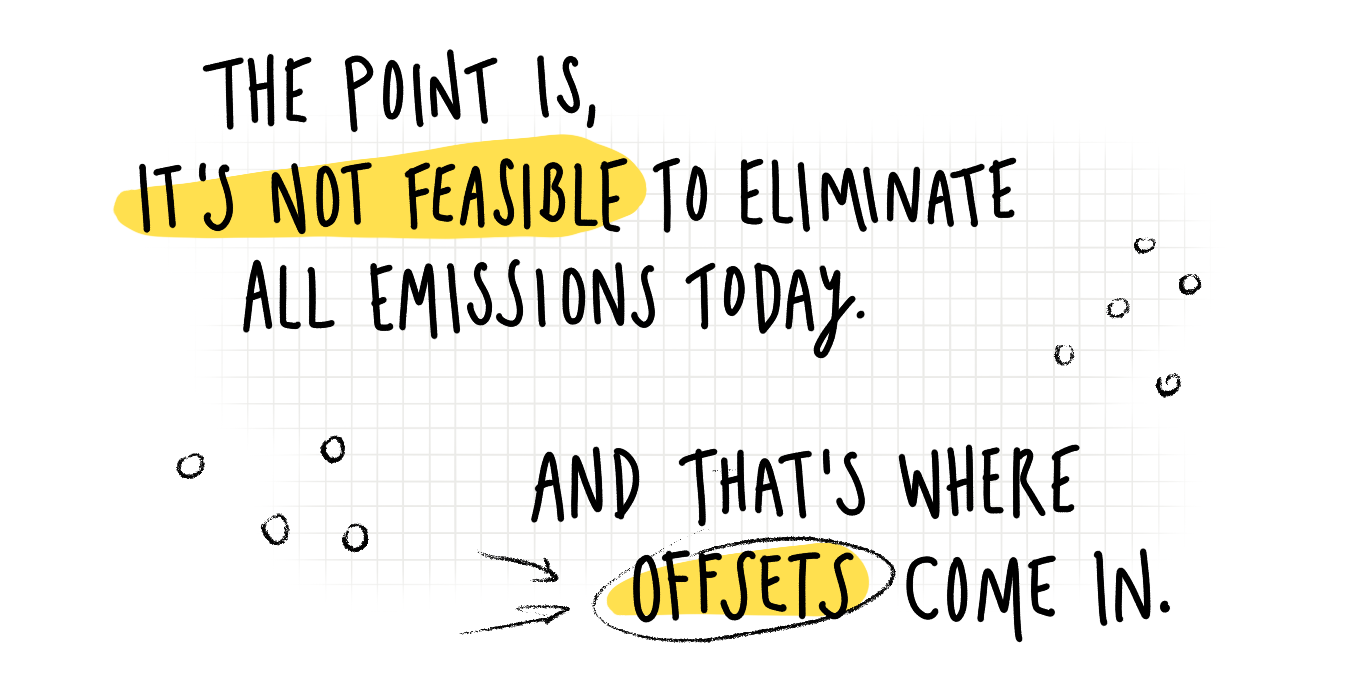 THE POINT IS,
IT'S NOT FEASIBLE TO ELIMINATE
ALL EMISSIONS TODAY.
AND THAT'S WHERE
OFFSETS COME IN.